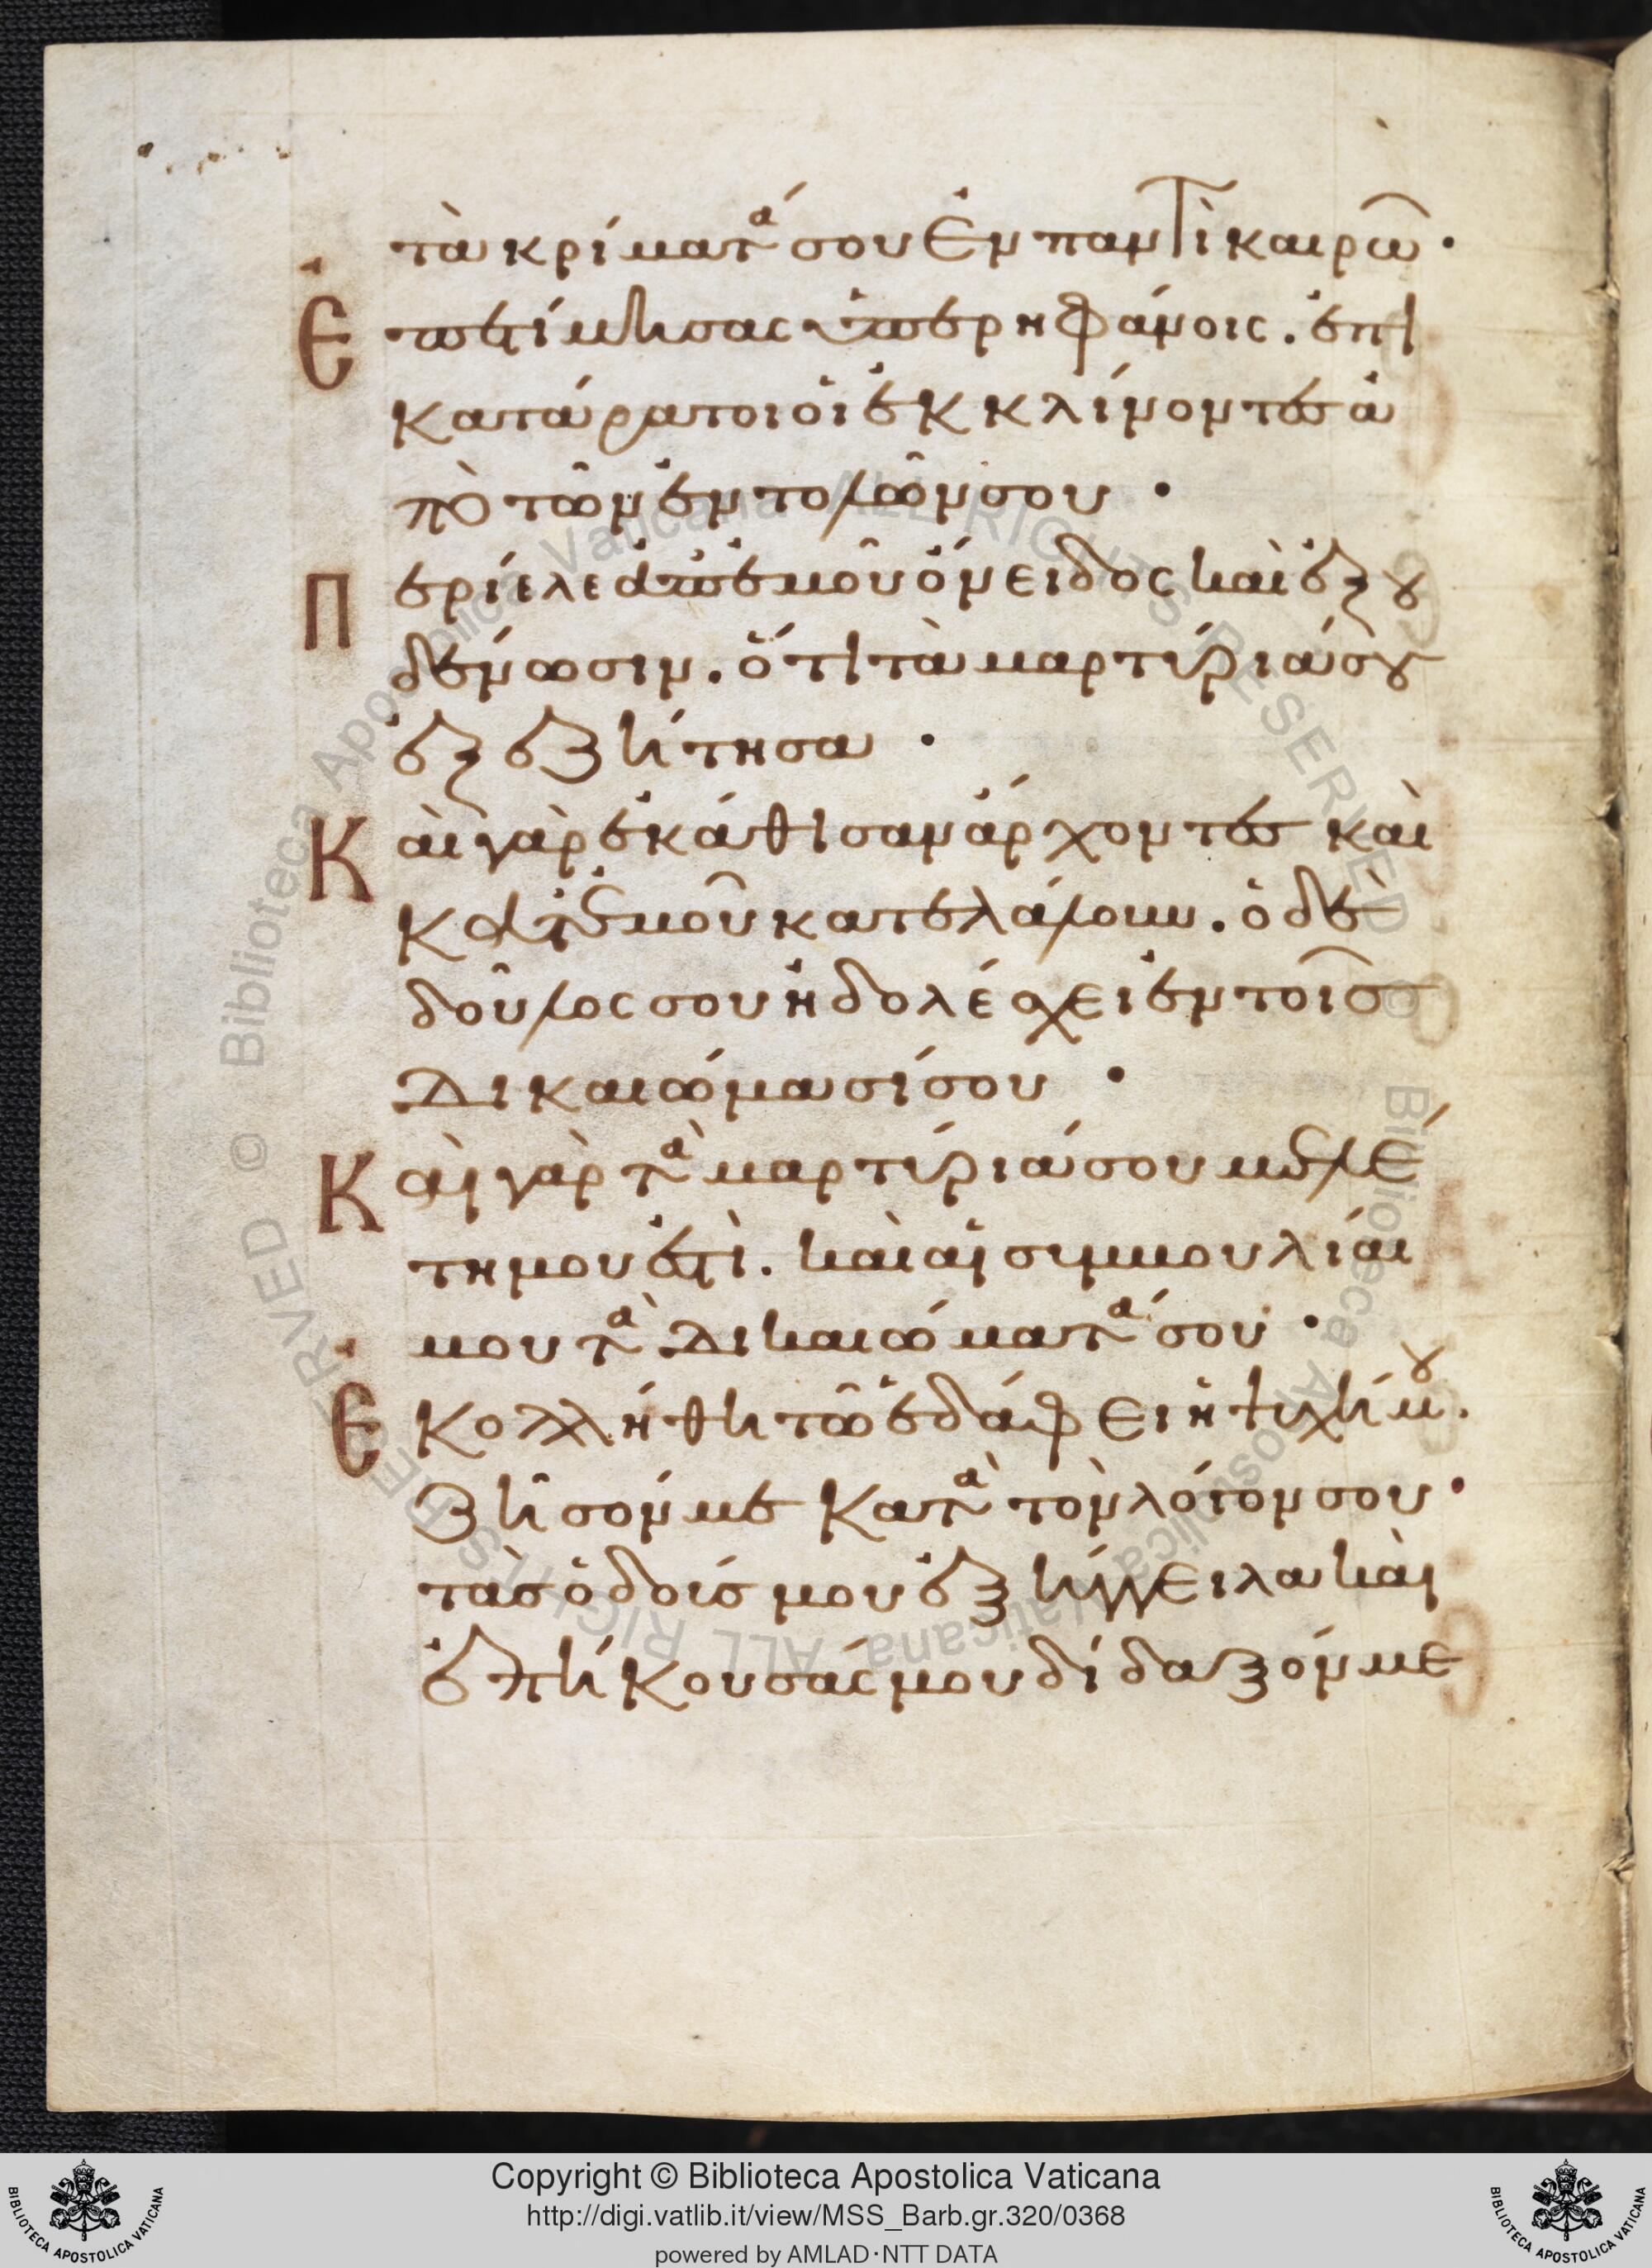 τὰ κρίματά σου ἐν παντὶ καιρῶ·
Ἐπετίμησας ὑπερηφάνοις. ἐπι
κατάρατοι οἱ ἐκκλίνοντες ἀ
πὸ τῶν ἐντολῶν σου·
Περίελε ἀπ' ἐμοῦ ὄνειδος καὶ ἐξου
δένωσιν. ὅτι τὰ μαρτύριά σου
ἐξεζήτησα·
Καὶ γὰρ ἐκάθισαν ἄρχοντες καὶ
κατ' ἐμοῦ κατελάλουν. ὁ δὲ
δοῦλος σου ἠδολέσχει ἐν τοῖς
δικαιώμασί σου·
Καὶ γὰρ τὰ μαρτύριά σου μελέ
τη μου ἐστὶ. καὶ αἱ συμβουλίαι
μου τὰ δικαιώματά σου·
Ἐκολλήθη τῶ ἐδάφει ἡ ψυχή μου.
ζῆσόν με κατὰ τὸν λόγον σου·
τὰς ὁδούς μου ἐξήγγειλα καὶ
ἐπήκουσάς μου δίδαξόν με
Copyright © Biblioteca Apostolica Vaticana
http://digi.vatlib.it/view/MSS_Barb.gr.320/0368
powered by AMLAD·NTT DATA
BIBLIOTECA APOSTOLICA VATICANA
BIBLIOTECA APOSTOLICA VATICANA
© Biblioteca Apostolica Vaticana ALL RIGHTS RESERVED
© Biblioteca Apostolica Vaticana ALL RIGHTS RESERVED